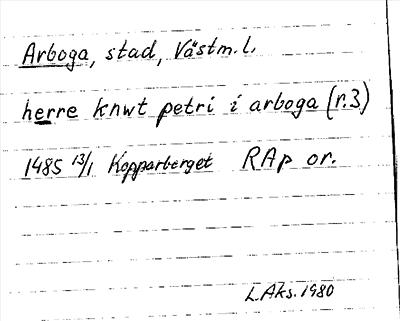 Arboga, stad, Västm.l.
herre knwt petri i arboga (r.3)
1485 13/1 Kopparberget RAp or.
L.Aks.1980